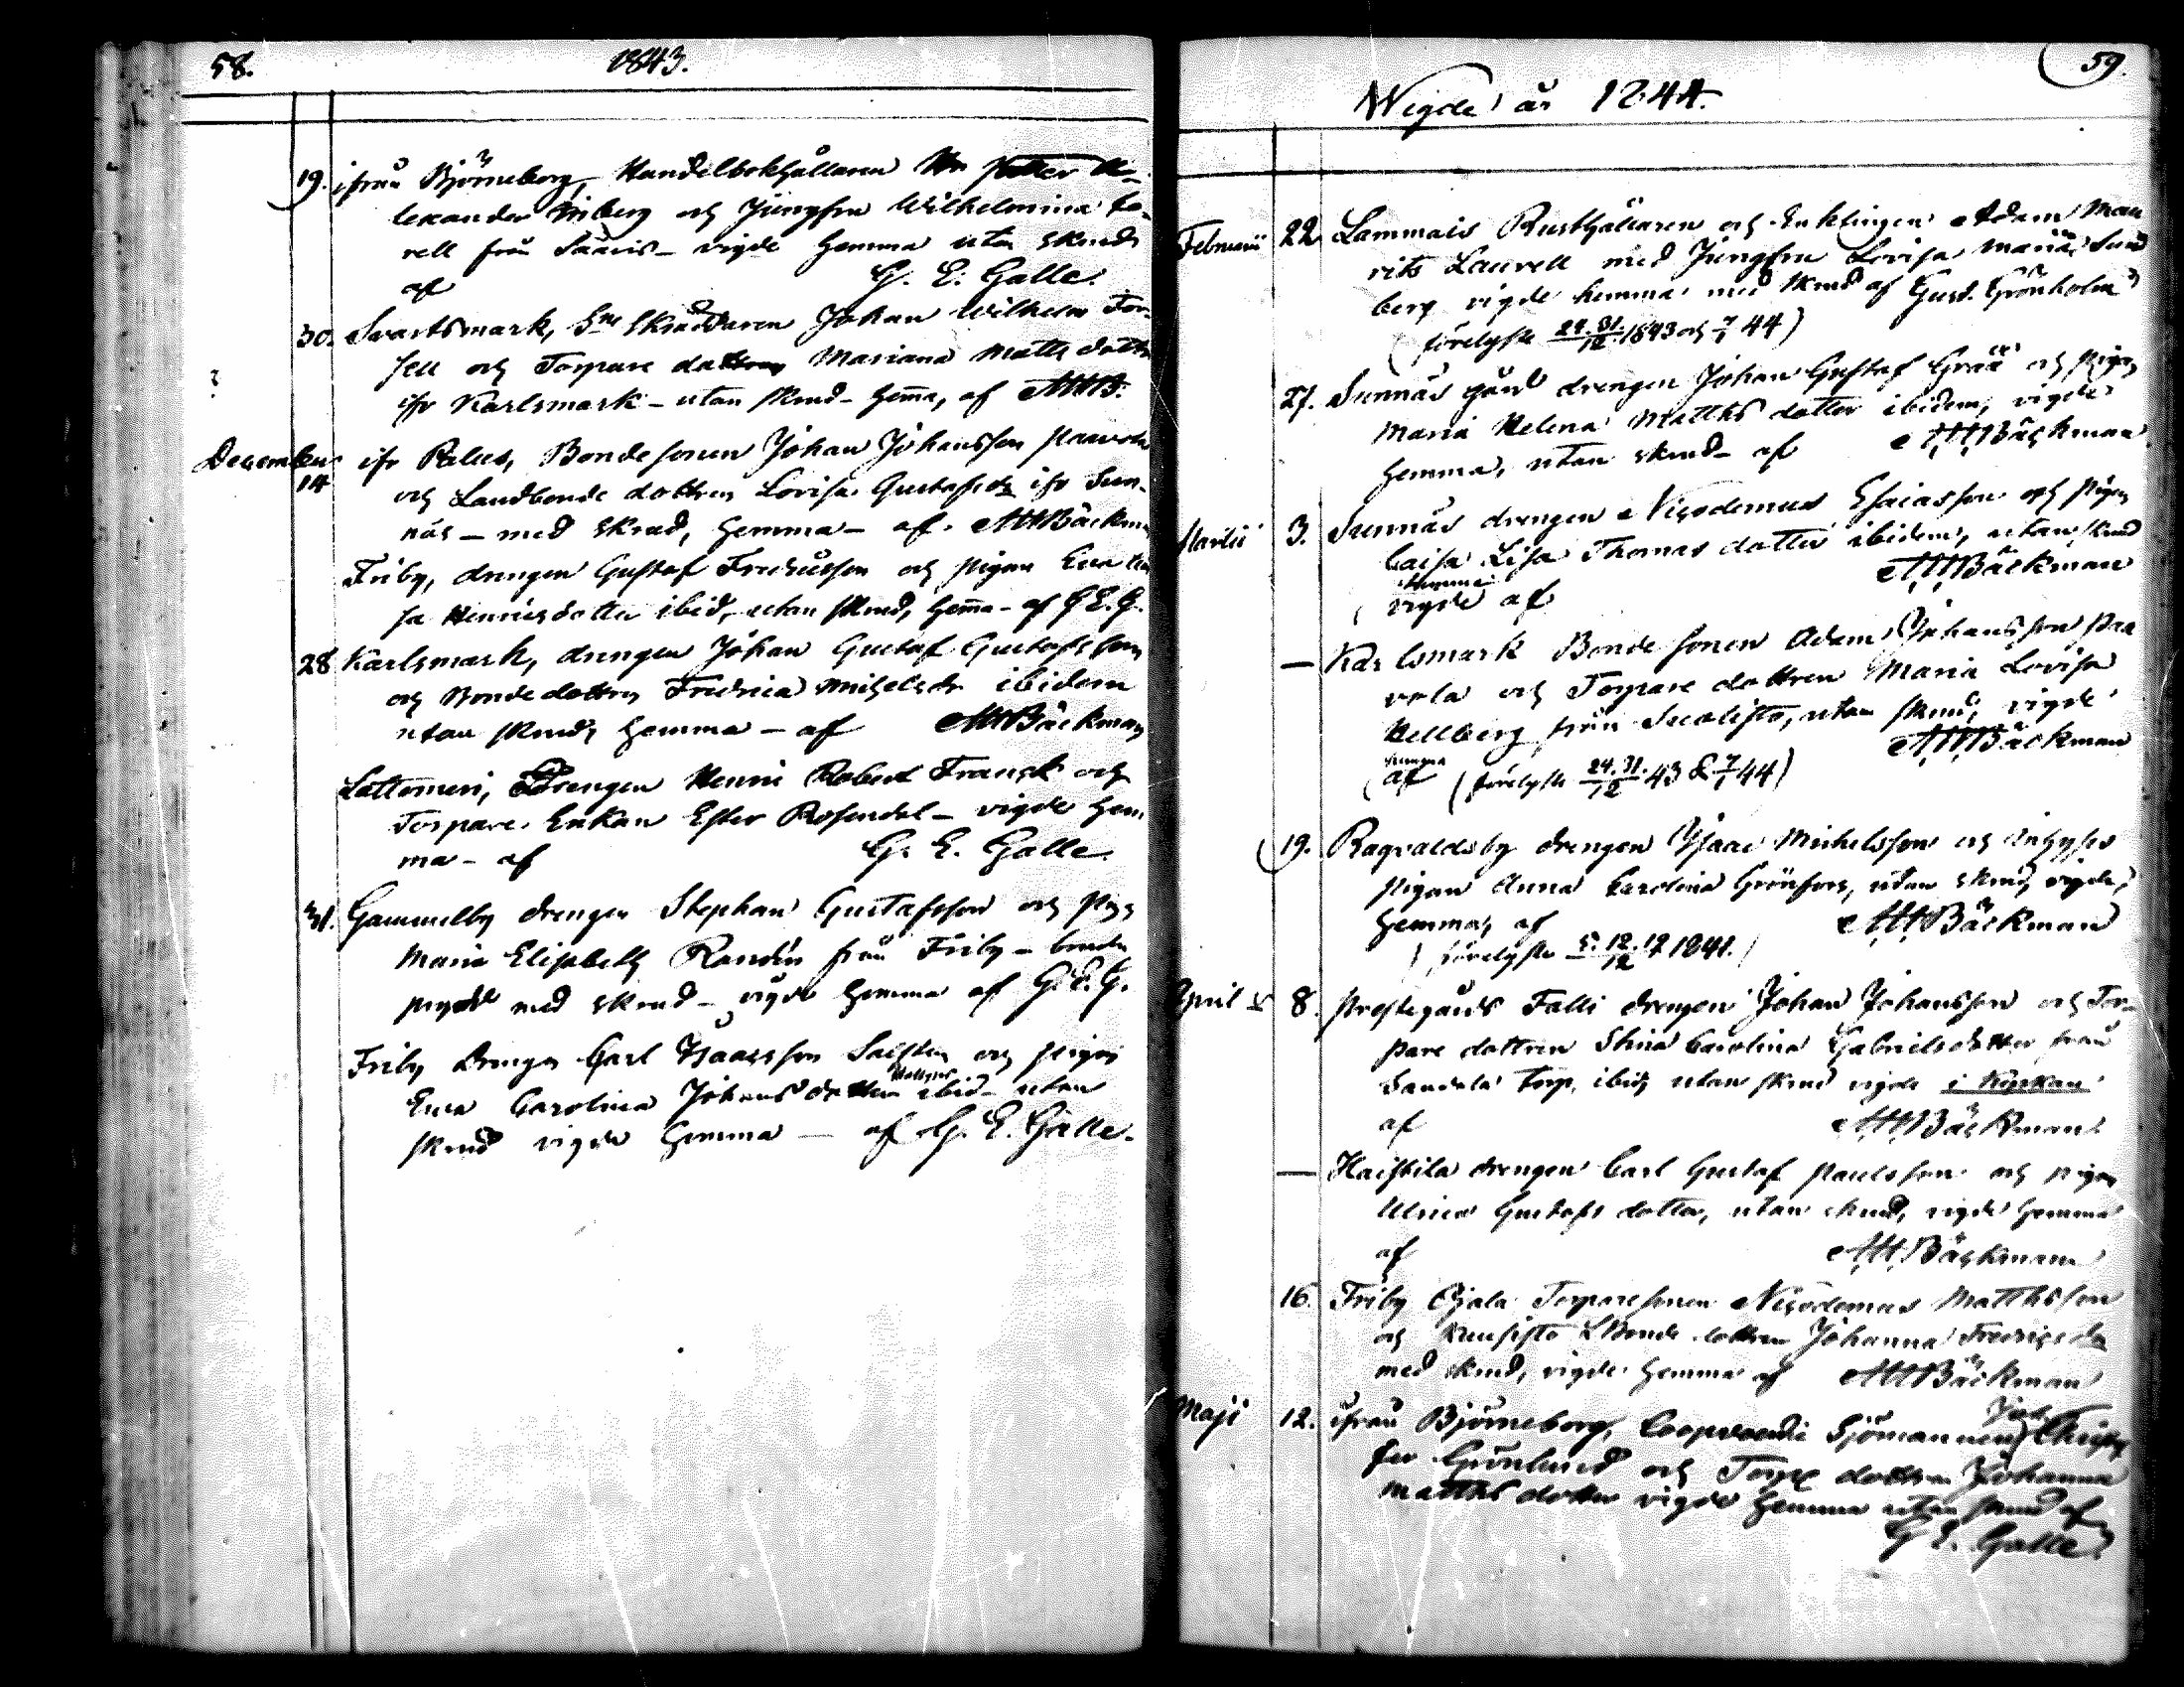 58.
1843.
19. ifrån Björneborg, Handelbokhållaren
lexander Friberg och Jungfru Wilhelmina To-
rell från Säävis - vigde hemma utan skrud
af G. E. Galle.
30. Svartsmark, Skräddaren Johan Wilhelm For-
sell och Torpare dottren Mariana Matts dotter
ifr Karlsmark - utan skrud - hemma, af
December 14 ifr Palus, Bondesonen Johan Johansson Pavola
och Landbonde dottren Lovisa Gustafsdr ifr Sun-
näs - med skrud, hemma - af Bäckman
Friby, drengen Gustaf Fredricsson och pigan Eva
sa Henricsdotter ibid, utan skrud, hemma - af G. E. G.
28 Karlsmark, drengen Johan Gustaf Gustafsson
och Bondedottren Fredrica Michelsdr ibidem
utan skrud, hemma - af Bäckman
Lattomeri, Drengen Henric Robert Franck och
Torpare Enkan Ester Rosendal - vigde hem-
ma - af G. E. Galle.
31. Gammelby drengen Stephan Gustafsson och pig.
Maria Elisabeth Randén från Friby - brud
prydd med skrud - vigde hemma af G. E. G.
Friby Drengen Carl Isaacsson Salsten och pigan
Eva Carolina Johansdotter ibid - utan
skrud vigde hemma - af G. E. Galle.
59.
Wigde år 1844.
Februarii 22 Lammais Rusthållaren och Enklingen Adam Mau
rits Laurell med Jungfru Lovisa Maria Sund
berg vigde hemma med skrud af Gust. Grönholm
(förelyste 24. 31./12 1843 och 7/1 44)
27. Sunnäs gård drengen Johan Gustaf Grää och pigan
Maria Helena Matths dotter ibidem, vigde
hemma, utan skrud - af Bäckman
Martii 3. Sunnäs drengen Nicodemus Esaiasson och pigan
Caisa Lisa Thomas dotter ibidem, utan skrud
hemma
vigde af Bäckman
— Karlsmark Bondesonen Adam Johansson Paa
vola och Torpare dottren Maria Lovisa
Hellberg från Inealisto, utan skrud, vigde
hemma
af (förelyste 24. 31./12 43 & 7/1 44) Bäckman
19. Ragvaldsby drengen Isaac Michelsson och Inhyses
pigan Anna Carolina Grönfors, utan skrud, vigde,
hemma, af Bäckman
(förelyste 5. 12./12 1841.)
April 8. Prestegårds Falli drengen Johan Johansson och Tor-
pare dottren Stina Carolina Gabrielsdotter från
Sandala torp, ibid, utan skrud vigde i Kyrkan
af Bäckman
— Haistila drengen Carl Gustaf Paulsson och pigan
Ulrica Gustafs dotter, utan skrud, vigde hemma
af Bäckman
16. Friby Ojala Torparesonen Nicodemus Matthsson
och Kuusisto LBonde dottren Johanna Fredricsdr
med skrud, vigde hemma af Bäckman
Maji 12. ifrån Björneborg, Coopvaerdi Sjömannen Christ
fer Grönlund och Torpe dottren Johanna
Matths dotter vigde hemma utan skrud af
G. E. Galle.